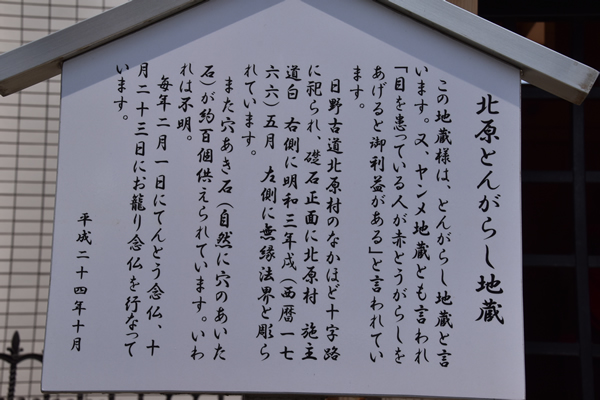 北原とんがらし地蔵
この地蔵様は、とんがらし地蔵と言
います。又、ヤンメ地蔵とも言われ
「目を患っている人が赤とうがらしを
あげると御利益がある」と言われてい
ます。
日野古道北原村のなかほど十字路
に祀られ、礎石正面に北原村　施主
道白　右側に明和三年戌（西暦一七
六六）五月　左側に無縁法界と彫ら
れています。
また穴あき石（自然に穴のあいた
石）が約百個供えられています。いわ
れは不明。
毎年二月一日にてんとう念仏、十
月二十三日にお籠り念仏を行なって
います。
平成二十四年十月